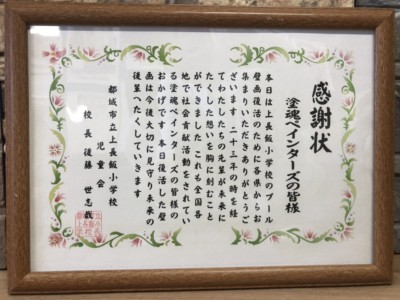 感謝状
塗魂ペインターズの皆様
本日は上長飯小学校のプール
壁画復活のために各県からお
集まりいただきありがとうご
ざいます 二十三年の時を経
てわたしたちの先輩が未来に
たくした想いを胸に刻むこと
ができました これも全国各
地で社会貢献活動をされてい
る塗魂ペインターズの皆様の
おかげです 本日復活した壁
画は今後大切に見守り未来の
後輩へたくしていきます
都城市立上長飯小学校
児童会
校長 後藤 世志哉